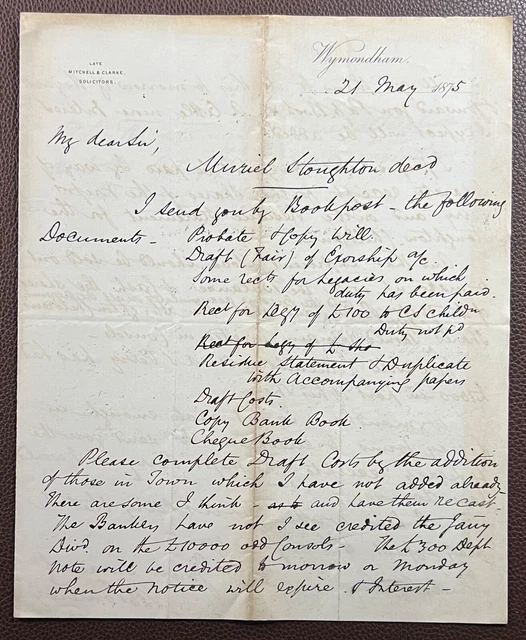 LATE
MITCHELL & CLARKE,
SOLICITORS.
Wymondham.
21 May 1875
My dear Sir,
Muriel Stoughton decd
I send you by Bookpost - the following
Documents - Probate & Copy Will.
Draft (Fair) of Exorship a/c.
Some rects for Legacies on which
duty has been paid.
Rect for Legy of £100 to CS childn
Duty not pd
Rect for Legy of £
Residue Statement & Duplicate
with Accompanying papers
Draft Costs
Copy Bank Book
Cheque Book
Please complete Draft Costs by the addition
of those in Town which I have not added already
There are some I think - and have them recast.
The Bankers have not I see credited the Jany
Divd. on the £10000 odd Consols - The £300 Dept
note will be credited tomorrow or Monday
when the notice will expire & Interest -